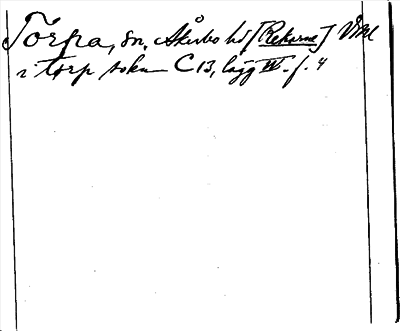 Torpa, sn, Åkerbo hd [Rekarne] Vstml
i torp sokn C 13, lägg IV. f. 4